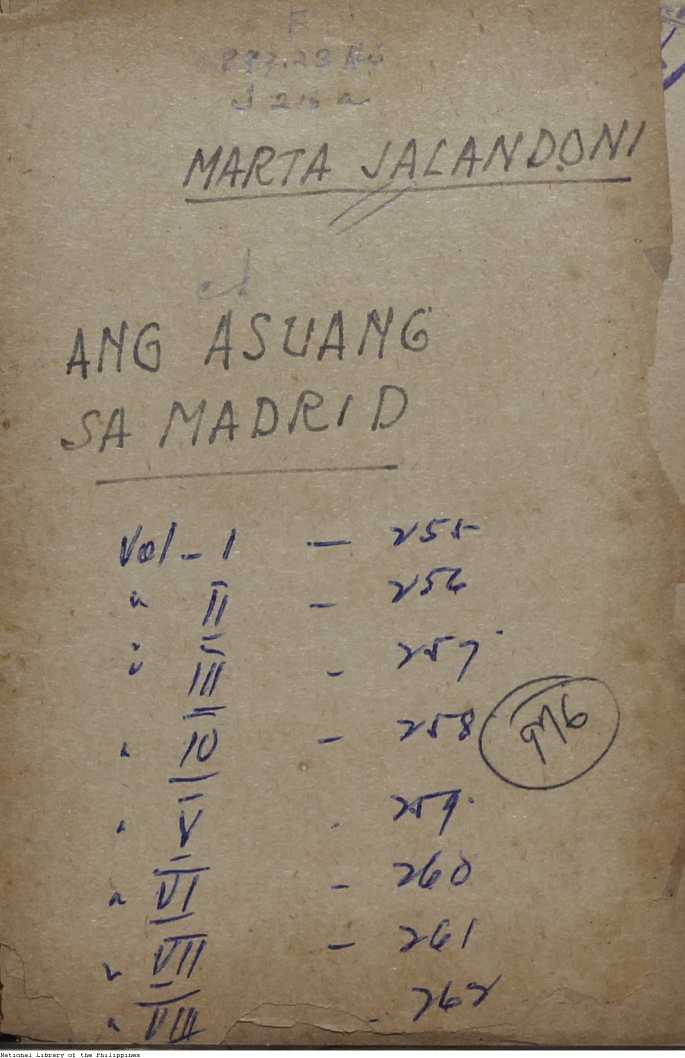 F
MARTA JALANDONI
ANG ASUANG
SA MADRID
Vol - I — 255
" II - 256
" III - 257
" IV - 258
976
" V - 259
" VI - 260
" VII - 261
" VIII - 262
National Library of the Philippines